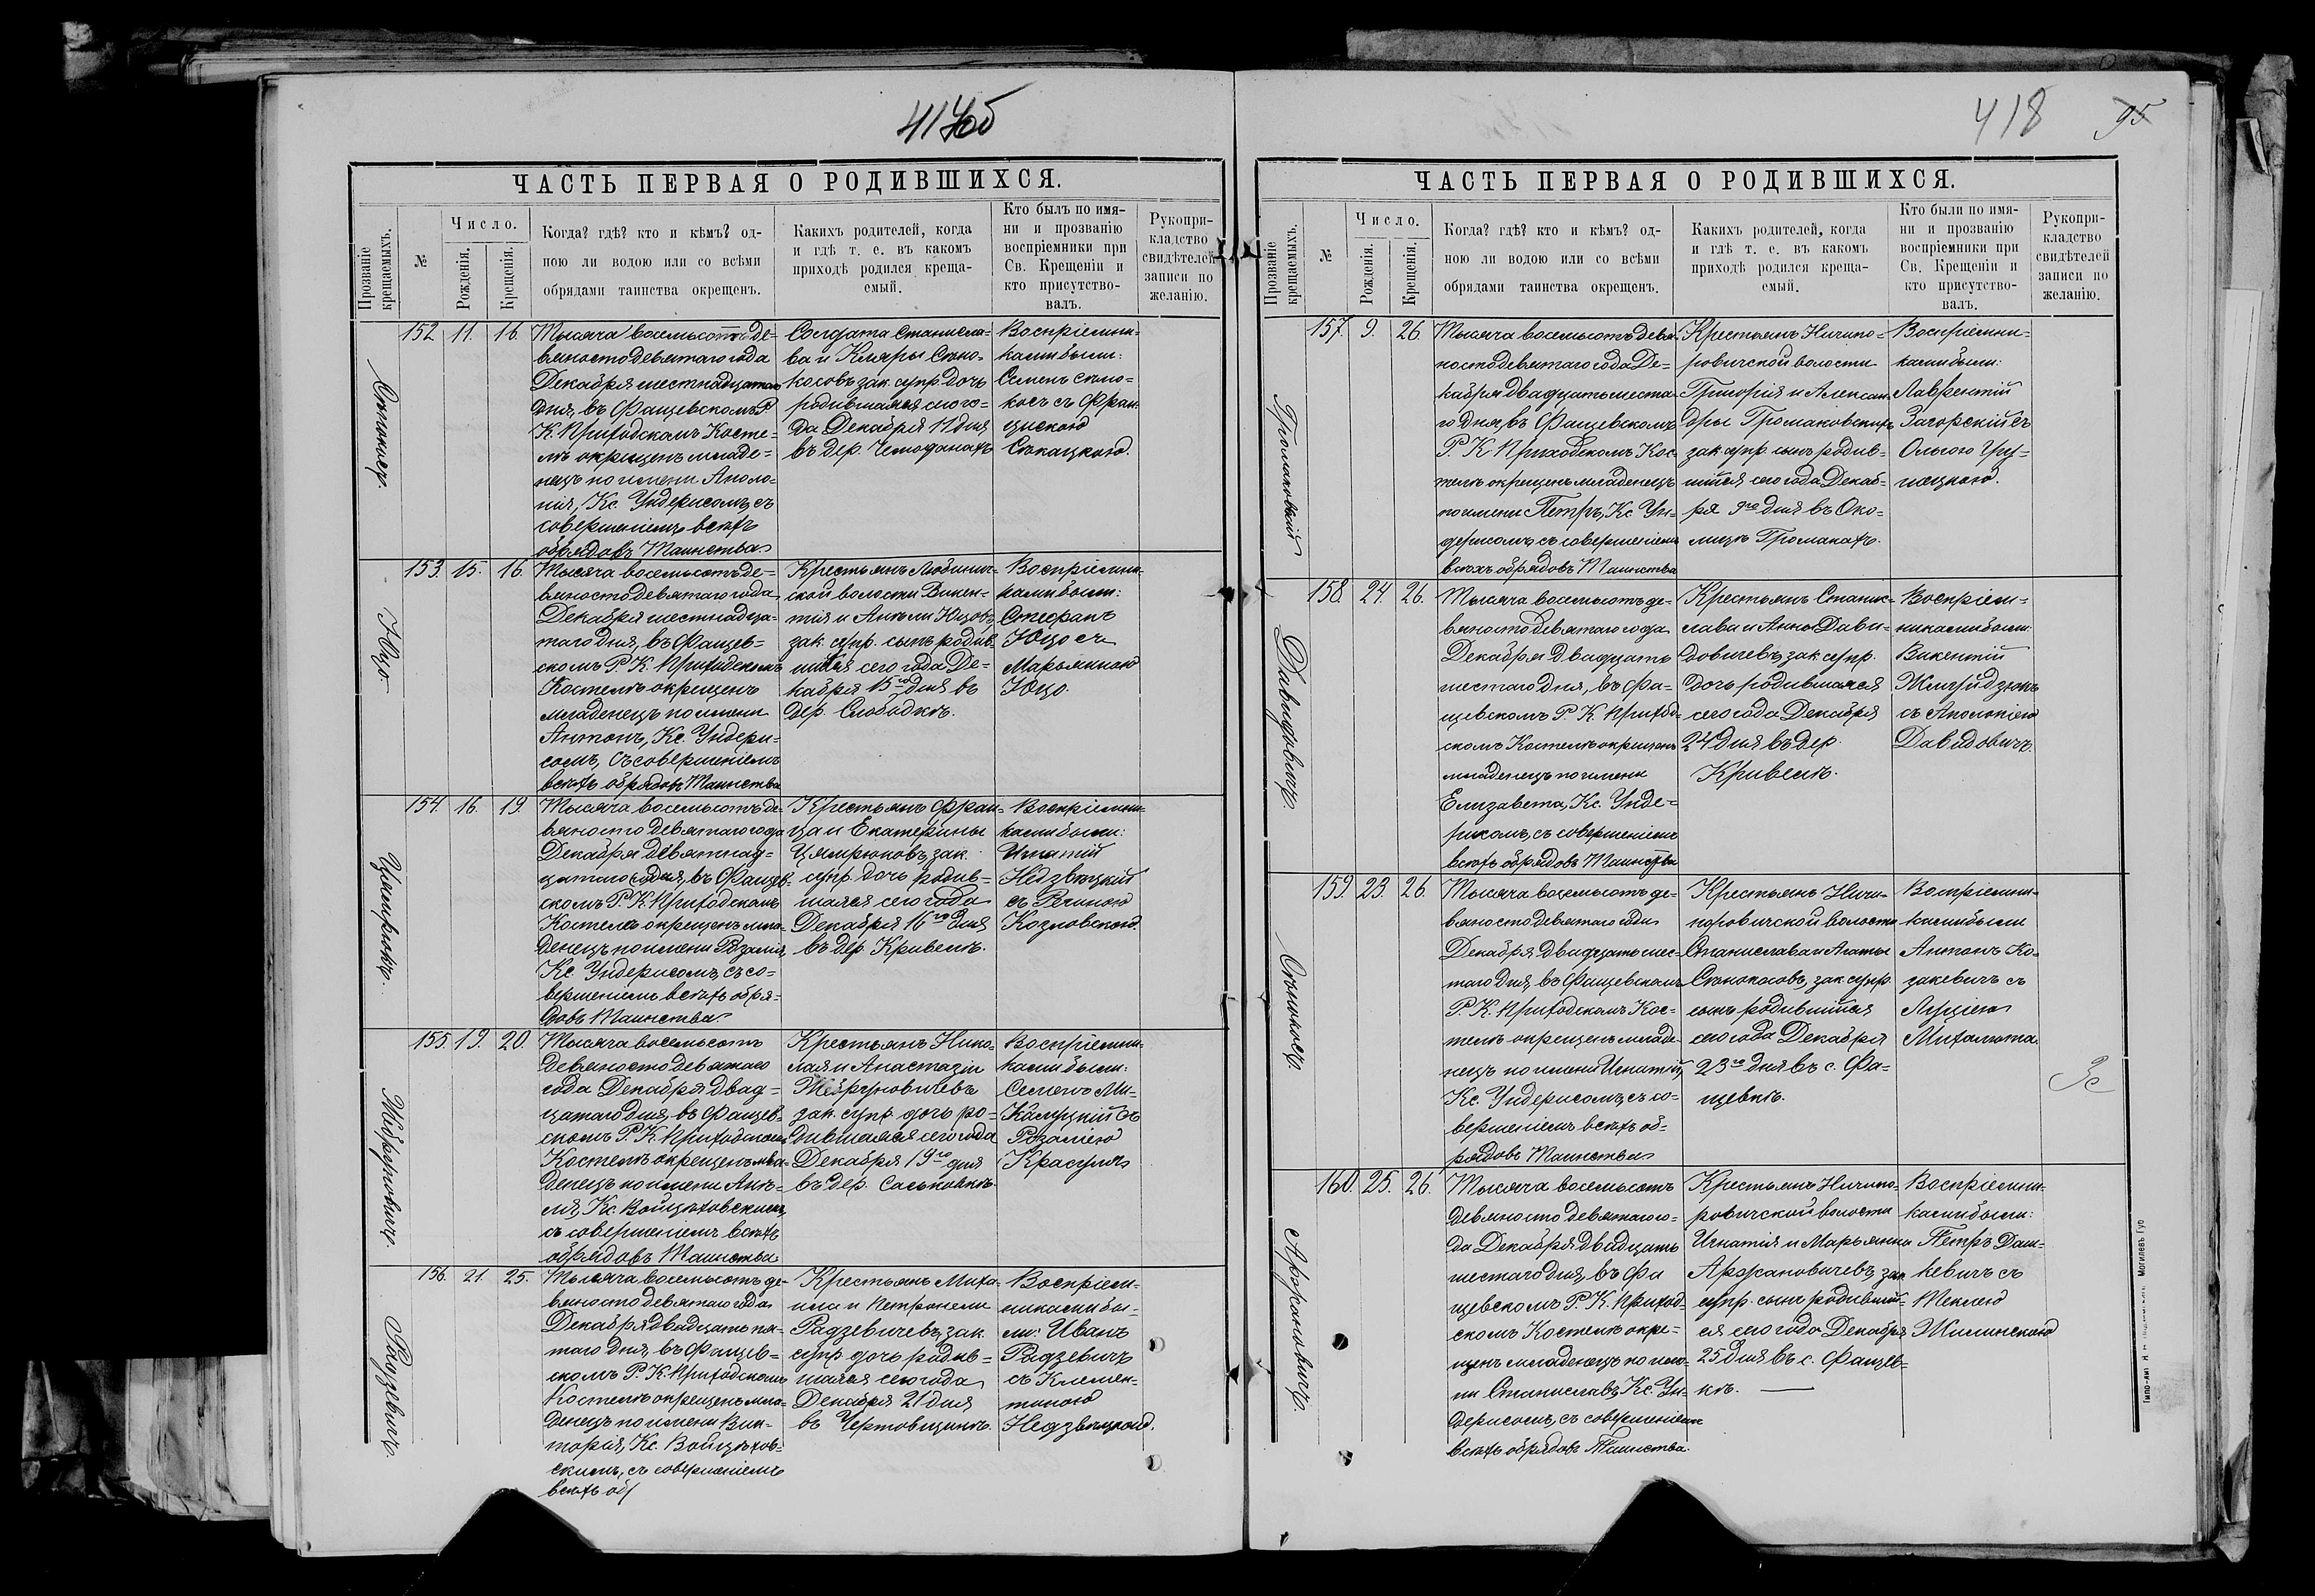 417об
ЧАСТЬ ПЕРВАЯ О РОДИВШИХСЯ.
Прозваніе крещаемыхъ.
№
Число.
Рожденія.
Крещенія.
Когда? гдѣ? кто и кѣмъ? од-
ною ли водою или со всѣми
обрядами таинства окрещенъ.
Какихъ родителей, когда
и гдѣ т. е. въ какомъ
приходѣ родился креща-
емый.
Кто былъ по имя-
ни и прозванію
воспріемники при
Св. Крещеніи и
кто присутство-
валъ.
Рукопри-
кладство
свидѣтелей
записи по
желанію.
Сѣнокосъ.
152 11. 16.
Тысяча восемьсотъ де-
вяностодевятаго года
Декабря шестнадцатаго
дня, въ Фащевскомъ Р
К. Приходскомъ Косте-
лѣ окрещенъ младе-
нецъ по имени Аполо-
нія, Кс. Ундерисомъ, съ
совершеніемъ всѣхъ
обрядовъ Таинства.
Солдата Станисла-
ва и Кляры Сѣно-
косовъ зак. супр. дочь
родившаяся сего го-
да Декабря 11 дня
въ дер. Чемоданахъ
Воспріемни-
ками были:
Семенъ Сѣно-
косъ съ Фран-
цискою
Сѣкацкою.
Юцо.
153. 15. 16.
Тысяча восемьсотъ де-
вяностодевятаго года
Декабря шестнадца-
таго дня, въ Фащев-
скомъ Р. К. Приходскомъ
Костелѣ окрещенъ
младенецъ по имени
Антонъ, Кс. Ундери-
сомъ, съ совершеніемъ
всѣхъ обрядовъ Таинства
Крестьянъ Любинич-
ской волости Викен-
тія и Анели Юцовъ,
зак. супр. сынъ родив-
шійся сего года Де-
кабря 15го дня въ
дер. Слободкѣ.
Воспріемни-
ками были:
Стефанъ
Юцо съ
Марьянною
Юцо.
Цямрюкъ.
154. 16. 19.
Тысяча восемьсотъ де-
вяносто девятаго года
Декабря девятнад-
цатаго дня, въ Фащев-
скомъ Р. К. Приходскомъ
Костелѣ окрещенъ мла-
денецъ по имени Розалія,
Кс. Ундерисомъ, съ со-
вершеніемъ всѣхъ обря-
довъ Таинства.
Крестьянъ Фран-
ца и Екатерины
Цямрюковъ, зак.
супр. дочь родив-
шаяся сего года
Декабря 16го дня
въ дер. Кривелѣ.
Воспріемни-
ками были:
Игнатій
Недзвѣцкій
съ Региною
Козловскою.
Жебруновичъ.
155. 19. 20.
Тысяча восемьсотъ
девяносто девятаго
года Декабря двад-
цатаго дня, въ Фащев-
скомъ Р. К. Приходскомъ
Костелѣ окрещенъ мла-
денецъ по имени Анѣ-
ля, Кс. Войцѣховскимъ,
съ совершеніемъ всѣхъ
обрядовъ Таинства.
Крестьянъ Нико-
лая и Анастазіи
Жебруновичевъ
зак. супр. дочь ро-
дившаяся сего года
Декабря 19го дня
въ дер. Саськовкѣ.
Воспріемни-
ками были:
Семенъ Ми-
калуцкій съ
Розаліею
Красуля
Радзевичъ.
156. 21. 25.
Тысяча восемьсотъ де-
вяностодевятаго года
Декабря двадцать пя-
таго дня, въ Фащев-
скомъ Р. К. Приходскомъ
Костелѣ окрещенъ мла-
денецъ по имени Вик-
торія, Кс. Войцѣхов-
скимъ, съ совершеніемъ
всѣхъ об
Крестьянъ Миха-
ила и Петронели
Радзевичевъ, зак.
супр. дочь родив-
шаяся сего года
Декабря 21 дня
въ Чертовщинѣ.
Воспріем-
никами бы-
ли: Иванъ
Радзевичъ
съ Клемен-
тиною
Недзвѣцкой.
418
95
ЧАСТЬ ПЕРВАЯ О РОДИВШИХСЯ.
Прозваніе крещаемыхъ.
№
Число.
Рожденія.
Крещенія.
Когда? гдѣ? кто и кѣмъ? од-
ною ли водою или со всѣми
обрядами таинства окрещенъ.
Какихъ родителей, когда
и гдѣ т. е. въ какомъ
приходѣ родился креща-
емый.
Кто были по имя-
ни и прозванію
воспріемники при
Св. Крещеніи и
кто присутство-
валъ.
Рукопри-
кладство
свидѣтелей
записи по
желанію.
Громаковскій
157. 9. 26.
Тысяча восемьсотъ девя-
ностодевятаго года Де-
кабря двадцать шеста-
го дня, въ Фащевскомъ
Р. К Приходскомъ Кос-
телѣ окрещенъ младенецъ
по имени Петръ, Кс. Ун-
дерисомъ, съ совершеніемъ
всѣхъ обрядовъ Таинства
Крестьянъ Ничипо-
ровичской волости
Григорія и Алексан-
дры Громаковскихъ
зак супр сынъ родив-
шійся сего года Декаб-
ря 9го дня въ Око-
лицѣ Громакахъ.
Воспріемни-
ками были:
Лаврентій
Загорскій съ
Ольгою
Давидовичъ.
158. 24. 26.
Тысяча восемьсотъ де-
вяностодевятаго года
Декабря двадцать
шестаго дня, въ Фа-
щевскомъ Р. К. Приход-
скомъ Костелѣ окрещенъ
младенецъ по имени
Елизавета, Кс. Унде-
рисомъ, съ совершеніемъ
всѣхъ обрядовъ Таинства
Крестьянъ Станис-
лава и Анны Дави-
довичевъ, зак. супр.
дочь родившаяся
сего года Декабря
24 дня въ дер.
Кривелѣ.
Воспріем-
никами были:
Викентій
съ Аполоніею
Давидовичъ.
Сѣнокосъ.
159. 23. 26.
Тысяча восемьсотъ де-
вяностодевятаго года
Декабря двадцать шес-
таго дня, въ Фащевскомъ
Р. К. Приходскомъ Кос-
телѣ окрещенъ младе-
нецъ по имени Игнатій,
Кс. Ундерисомъ, съ со-
вершеніемъ всѣхъ об-
рядовъ Таинства
Крестьянъ Ничи-
поровичской волости
Станислава и Агаты
Сѣнокосовъ, зак. супр.
сынъ родившійся
сего года Декабря
23го дня въ с. Фа-
щевкѣ.
Воспріемни-
ками были
Антонъ Ко-
закевичъ съ
Луціею
Михалюта.
Зс
Арфановичъ.
160. 25. 26.
Тысяча восемьсотъ
девяносто девятаго го-
да Декабря двадцать
шестаго дня, въ Фа
щевскомъ Р. К. Приход-
скомъ Костелѣ окре-
щенъ младенецъ по име-
ни Станиславъ, Кс. Ун-
дерисомъ, съ совершеніемъ
всѣхъ обрядовъ Таинства.
Крестьянъ Ничипо-
ровичской волости
Игнатія и Марьянны
Арфановичевъ, зак
супр. сынъ родившій-
ся сего года Декабря
25 дня въ с. Фащев-
кѣ.
Воспріемни-
ками были:
Петръ Даш-
кевичъ съ
Теклею
Жилинскою
Могилевъ Губ